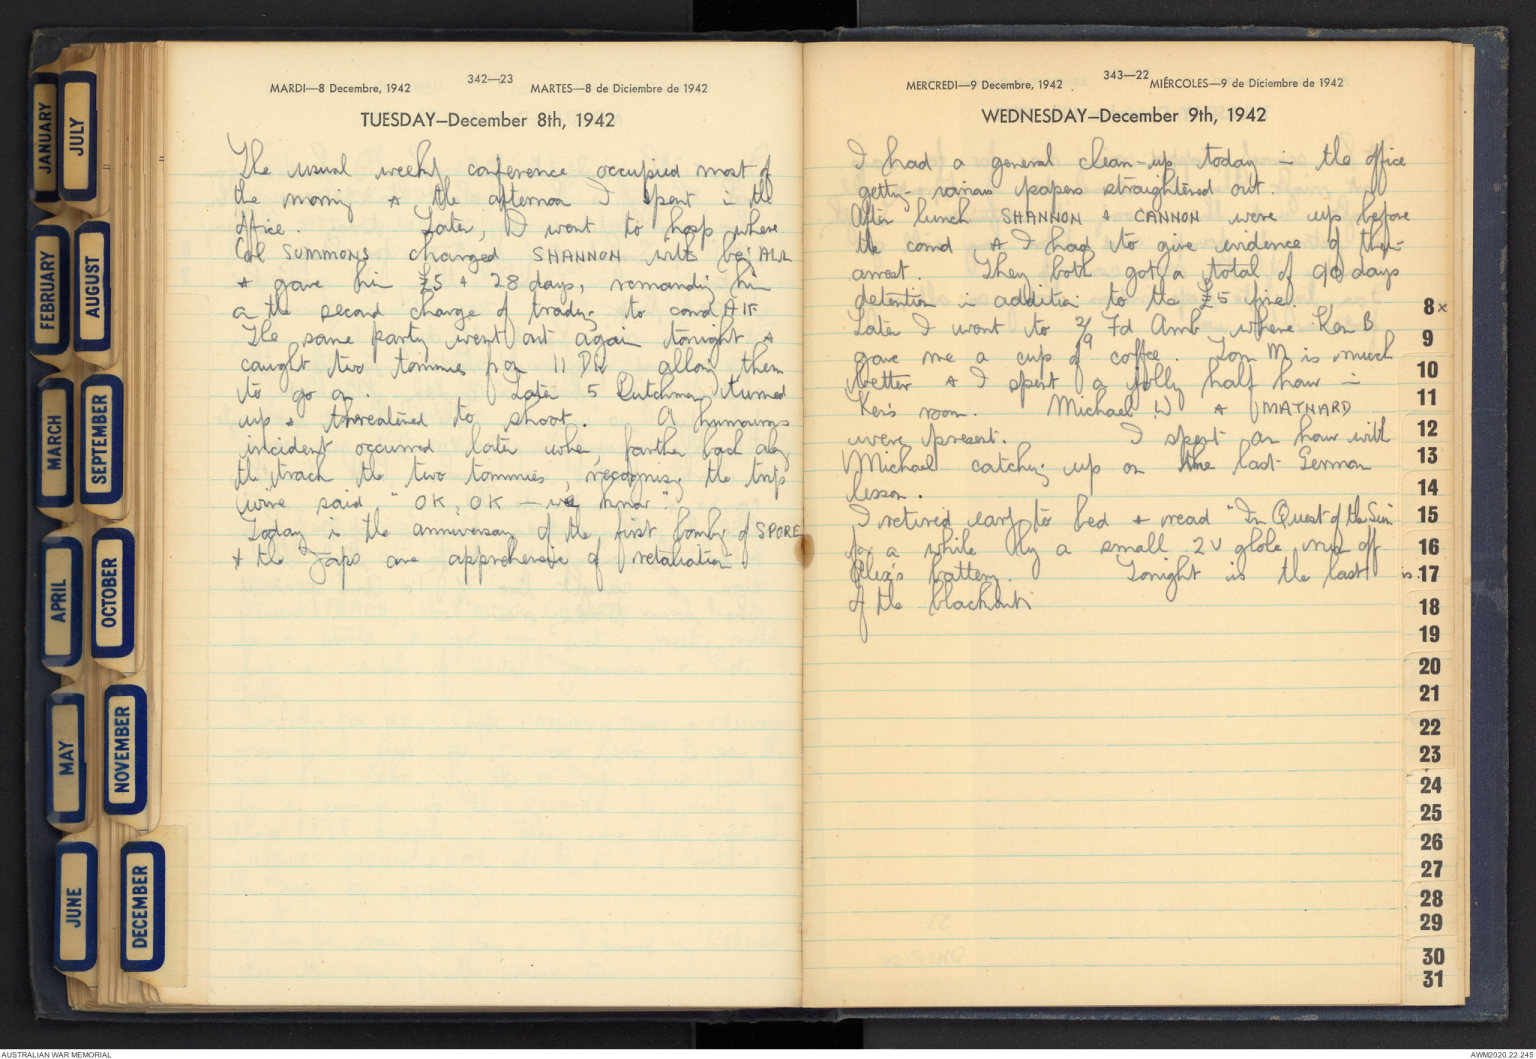 JANUARY
JULY
FEBRUARY
AUGUST
MARCH
SEPTEMBER
APRIL
OCTOBER
MAY
NOVEMBER
JUNE
DECEMBER
342—23
MARDI—8 Decembre, 1942 MARTES—8 de Diciembre de 1942
TUESDAY—December 8th, 1942
The usual weekly conference occupied most of
the morning & the afternoon I spent in the
office. Later, I went to hosp where
Col SUMMONS charged SHANNON with being AWL
& gave him £5 & 28 days, remanding him
on the second charge of trading to comd AIF
The same party went out again tonight &
caught two tommies from 11 Div allowing them
to go on. Later 5 Dutchmen turned
up & threatened to shoot. A humourous
incident occurred later when, farther back along
the track the two tommies, recognising the trip
wire said "OK, OK — we know".
Today is the anniversary of the first bombing of SPORE
& the Japs are apprehensive of retaliation
343—22
MERCREDI—9 Decembre, 1942 MIÉRCOLES—9 de Diciembre de 1942
WEDNESDAY—December 9th, 1942
I had a general clean-up today in the office
getting various papers straightened out.
After lunch SHANNON & CANNON were up before
the comd & I had to give evidence of their
arrest. They both got a total of 90 days
detention in addition to the £5 fine.
Later I went to 2/9 Fd Amb where Ken B
gave me a cup of coffee. Tom M is much
better & I spent a jolly half hour in
Ken's room. Michael W & MAYNARD
were present. I spent an hour with
Michael catching up on the last German
lesson.
I retired early to bed & read "In Quest of the Sun
for a while by a small 2V globe run off
Alex's battery. Tonight is the last
of the blackouts
8
9
10
11
12
13
14
15
16
17
18
19
20
21
22
23
24
25
26
27
28
29
30
31
AUSTRALIAN WAR MEMORIAL
AWM2020.22.245